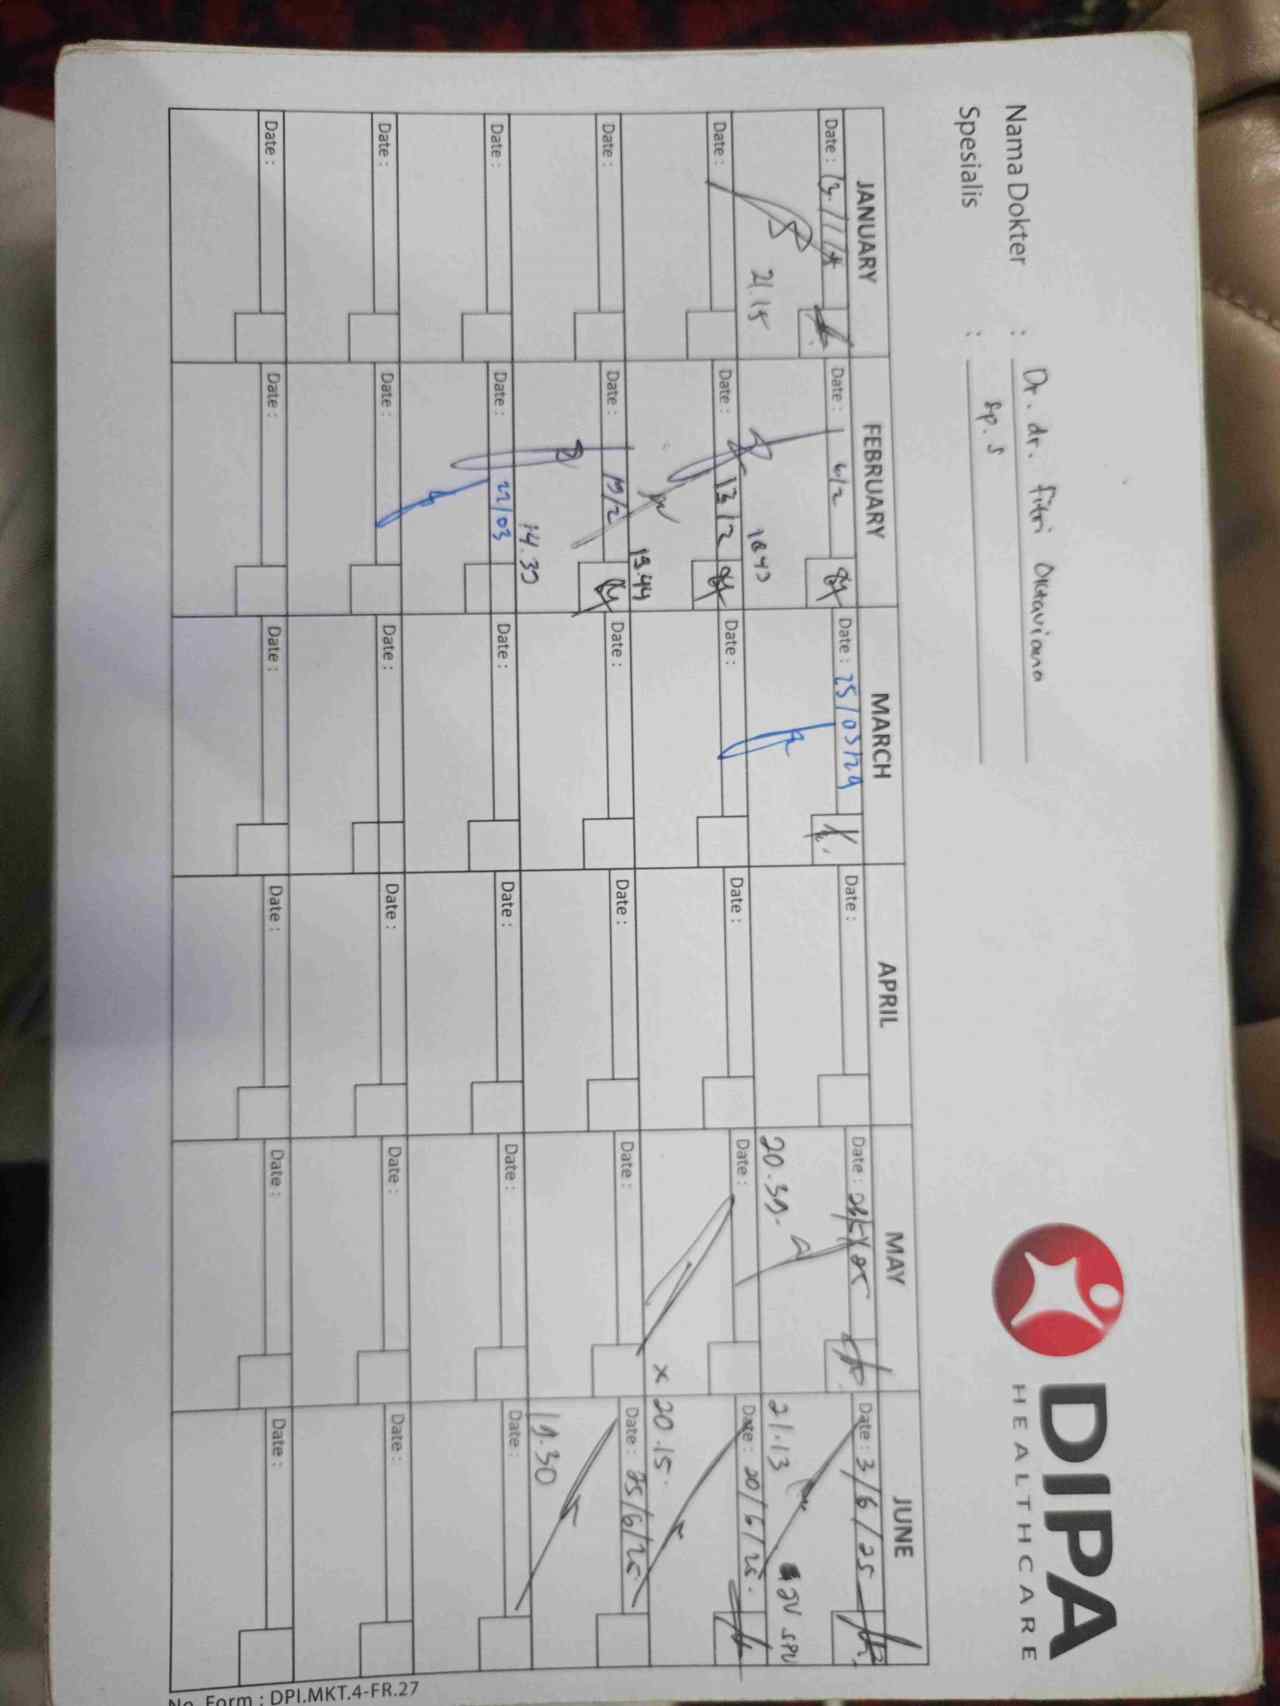 DIPA
HEALTHCARE
Nama Dokter : Dr. dr. Fitri Oktaviana
Spesialis : Sp. S
JANUARY FEBRUARY MARCH APRIL MAY JUNE
Date : 13/1/ Date : 6/2 Date : 25/03/24 Date : Date : Date : 3/6/25
21.15 18.43 20.39. 21.13
Date : Date : 13/2 Date : Date : Date : Date : 20/6/25.
19.44 x 20.15.
Date : Date : 19/2 Date : Date : Date : Date : 25/6/25
14.30 19.30
Date : Date : 22/03 Date : Date : Date : Date :
Date : Date : Date : Date : Date : Date :
Date : Date : Date : Date : Date : Date :
No. Form : DPI.MKT.4-FR.27